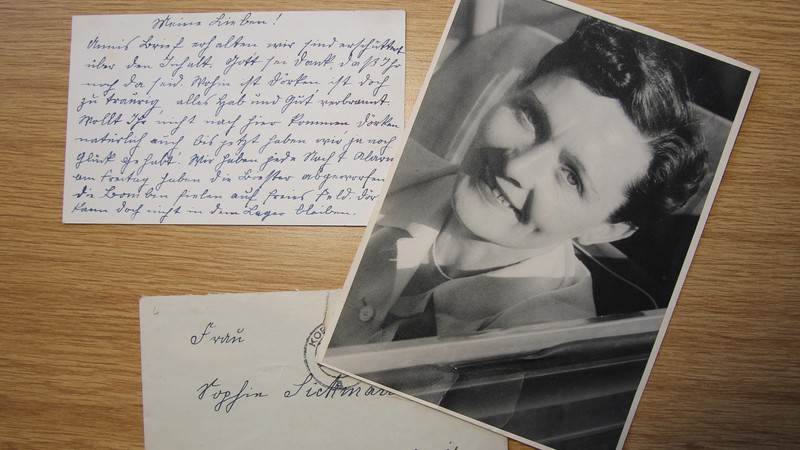 Meine Lieben!
Annis Brief erhalten wir sind erschüttert
über den Inhalt. Gott sei Dank daß Ihr
noch da seid. Wohin ist Dörken ist doch
zu traurig, alles Hab und Gut verbrannt.
Wollt Ihr nicht nach hier kommen Dörken
natürlich auch bis jetzt haben wir ja noch
Glück gehabt. Wir haben jede Nacht Alarm
am Freitag haben die Biester abgeworfen
die Bomben fielen auf freies Feld. Dör
kann doch nicht in dem Lager bleiben.
Frau
Sophie Sickman
KO